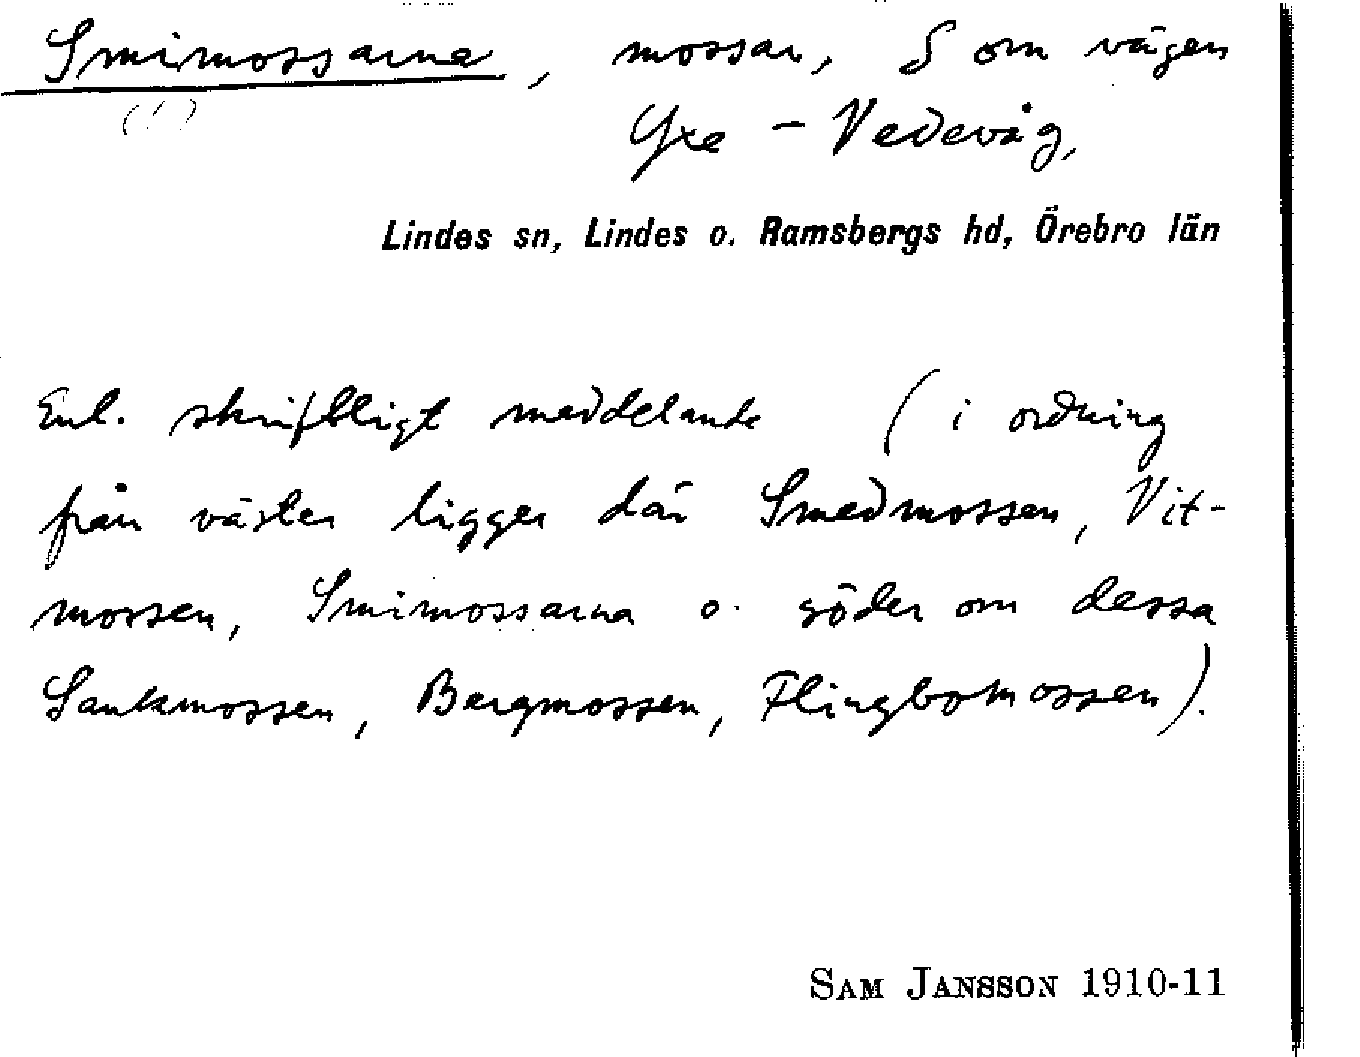 Smimossarne, mossar, S om vägen
(!)
Yxe - Vedevåg,
Lindes sn, Lindes o. Ramsbergs hd, Örebro län
Enl. skriftligt meddelande (i ordning
från väster ligger där Smedmossen, Vit-
mossen, Smimossarna o. söder om dessa
Sankmossen, Bergmossen, Flingbomossen).
SAM JANSSON 1910-11